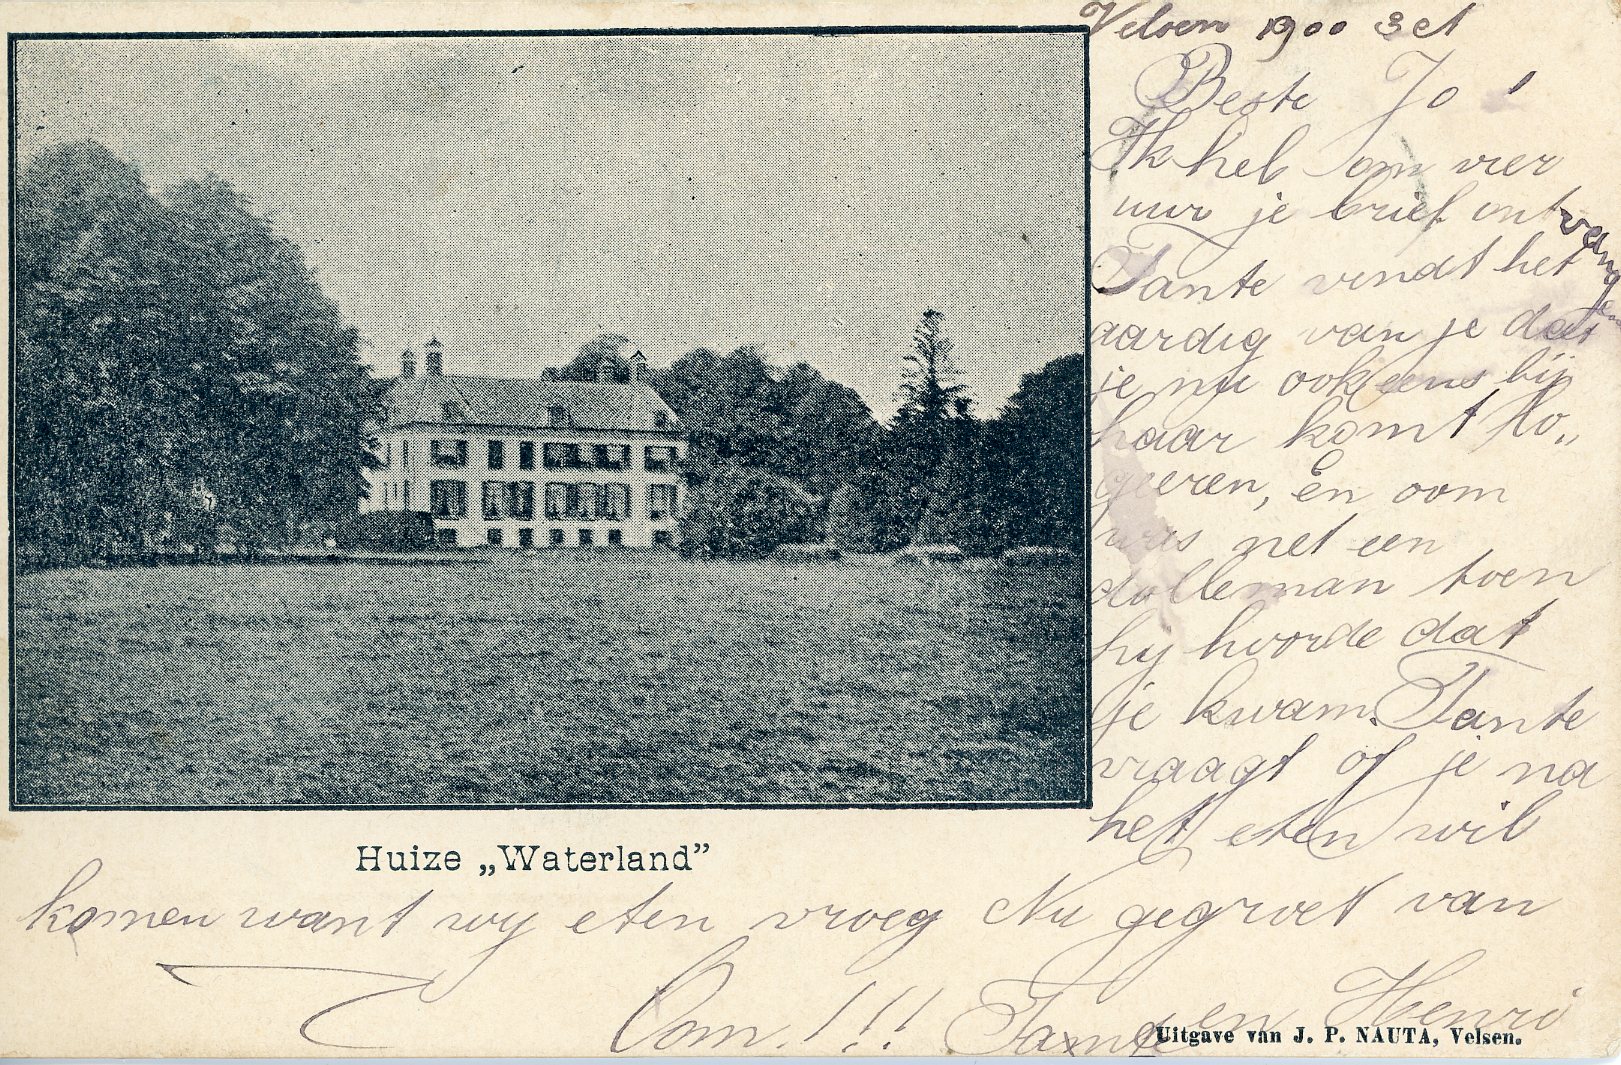 Velsen 1900 3 Oct
Beste Jo!
Ik heb om vier
uur je brief ontvangen
Tante vindt het
aardig van je dat
je nu ook eens bij
haar komt lo„
geeren, En oom
was net een
dolleman toen
hy hoorde dat
je kwam. Tante
vraagt of je na
het eten wil
Huize „Waterland”
komen want wy eten vroeg Nu gegroet van
Oom!!! Tante en Henri
Uitgave van J. P. NAUTA, Velsen.